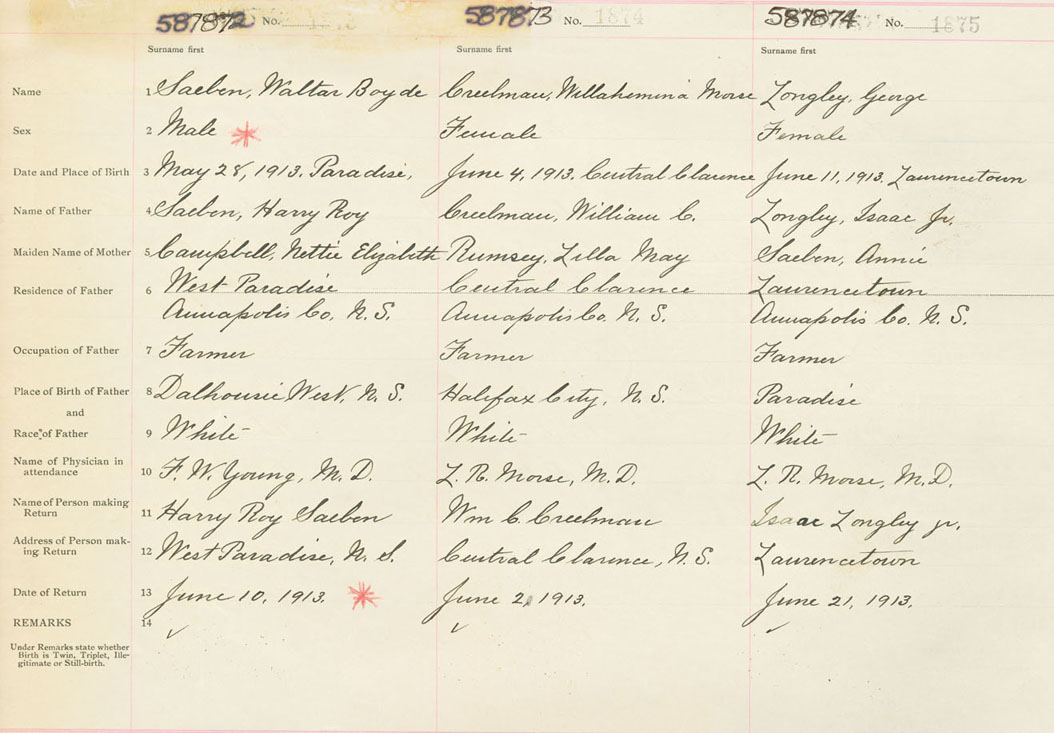 587872 No. 587873 No. 1874 587874 No. 1875
Surname first Surname first Surname first
Name 1 Saeben, Waltar Boyde Creelman, Willahemina Morse Longley, George
Sex 2 Male Female Female
Date and Place of Birth 3 May 28, 1913. Paradise, June 4, 1913. Central Clarence June 11, 1913, Laurencetown
Name of Father 4 Saeben, Harry Roy Creelman, William C. Longley, Isaac Jr.
Maiden Name of Mother 5 Campbell, Nettie Elizabeth Rumsey, Zilla May Saeben, Annie
Residence of Father 6 West Paradise Central Clarence Laurencetown
Annapolis Co, N. S. Annapolis Co. N. S. Annapolis Co. N. S.
Occupation of Father 7 Farmer Farmer Farmer
Place of Birth of Father 8 Dalhousie West, N. S. Halifax City, N. S. Paradise
and
Race of Father 9 White White White
Name of Physician in
attendance 10 F. W. Young, M. D. L. R. Morse, M. D. L. R. Morse, M. D.
Name of Person making
Return 11 Harry Roy Saeben Wm C. Creelman Isaac Longley jr.
Address of Person mak-
ing Return 12 West Paradise, N. S. Central Clarence, N. S. Laurencetown
Date of Return 13 June 10, 1913. June 2, 1913. June 21, 1913.
REMARKS 14
Under Remarks state whether
Birth is Twin, Triplet, Ille-
gitimate or Still-birth.